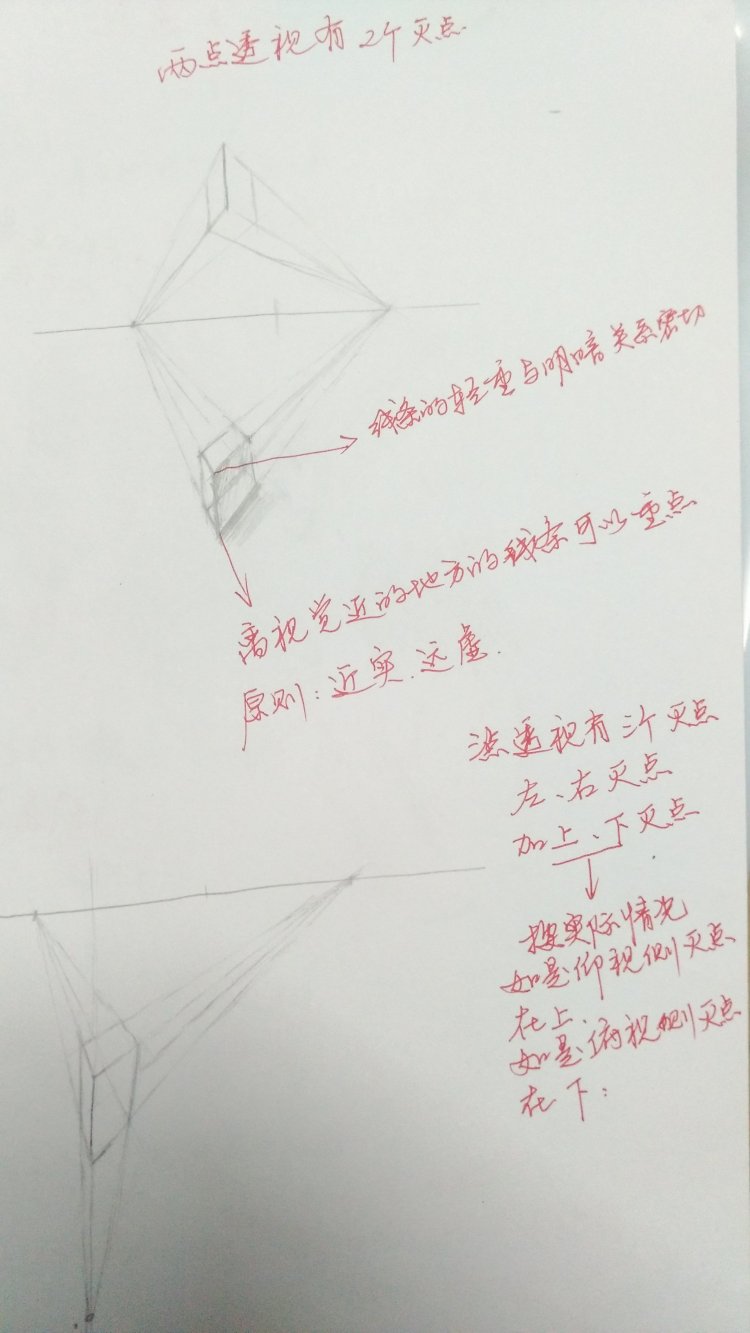 两点透视有2个灭点
线条的轻重与明暗关系密切
离视觉近的地方的线条可以重点
原则：近实.远虚.
透视有三个灭点
左、右灭点
加上、下灭点
按实际情况
如是仰视侧灭点
在上.
如是俯视侧灭点
在下：